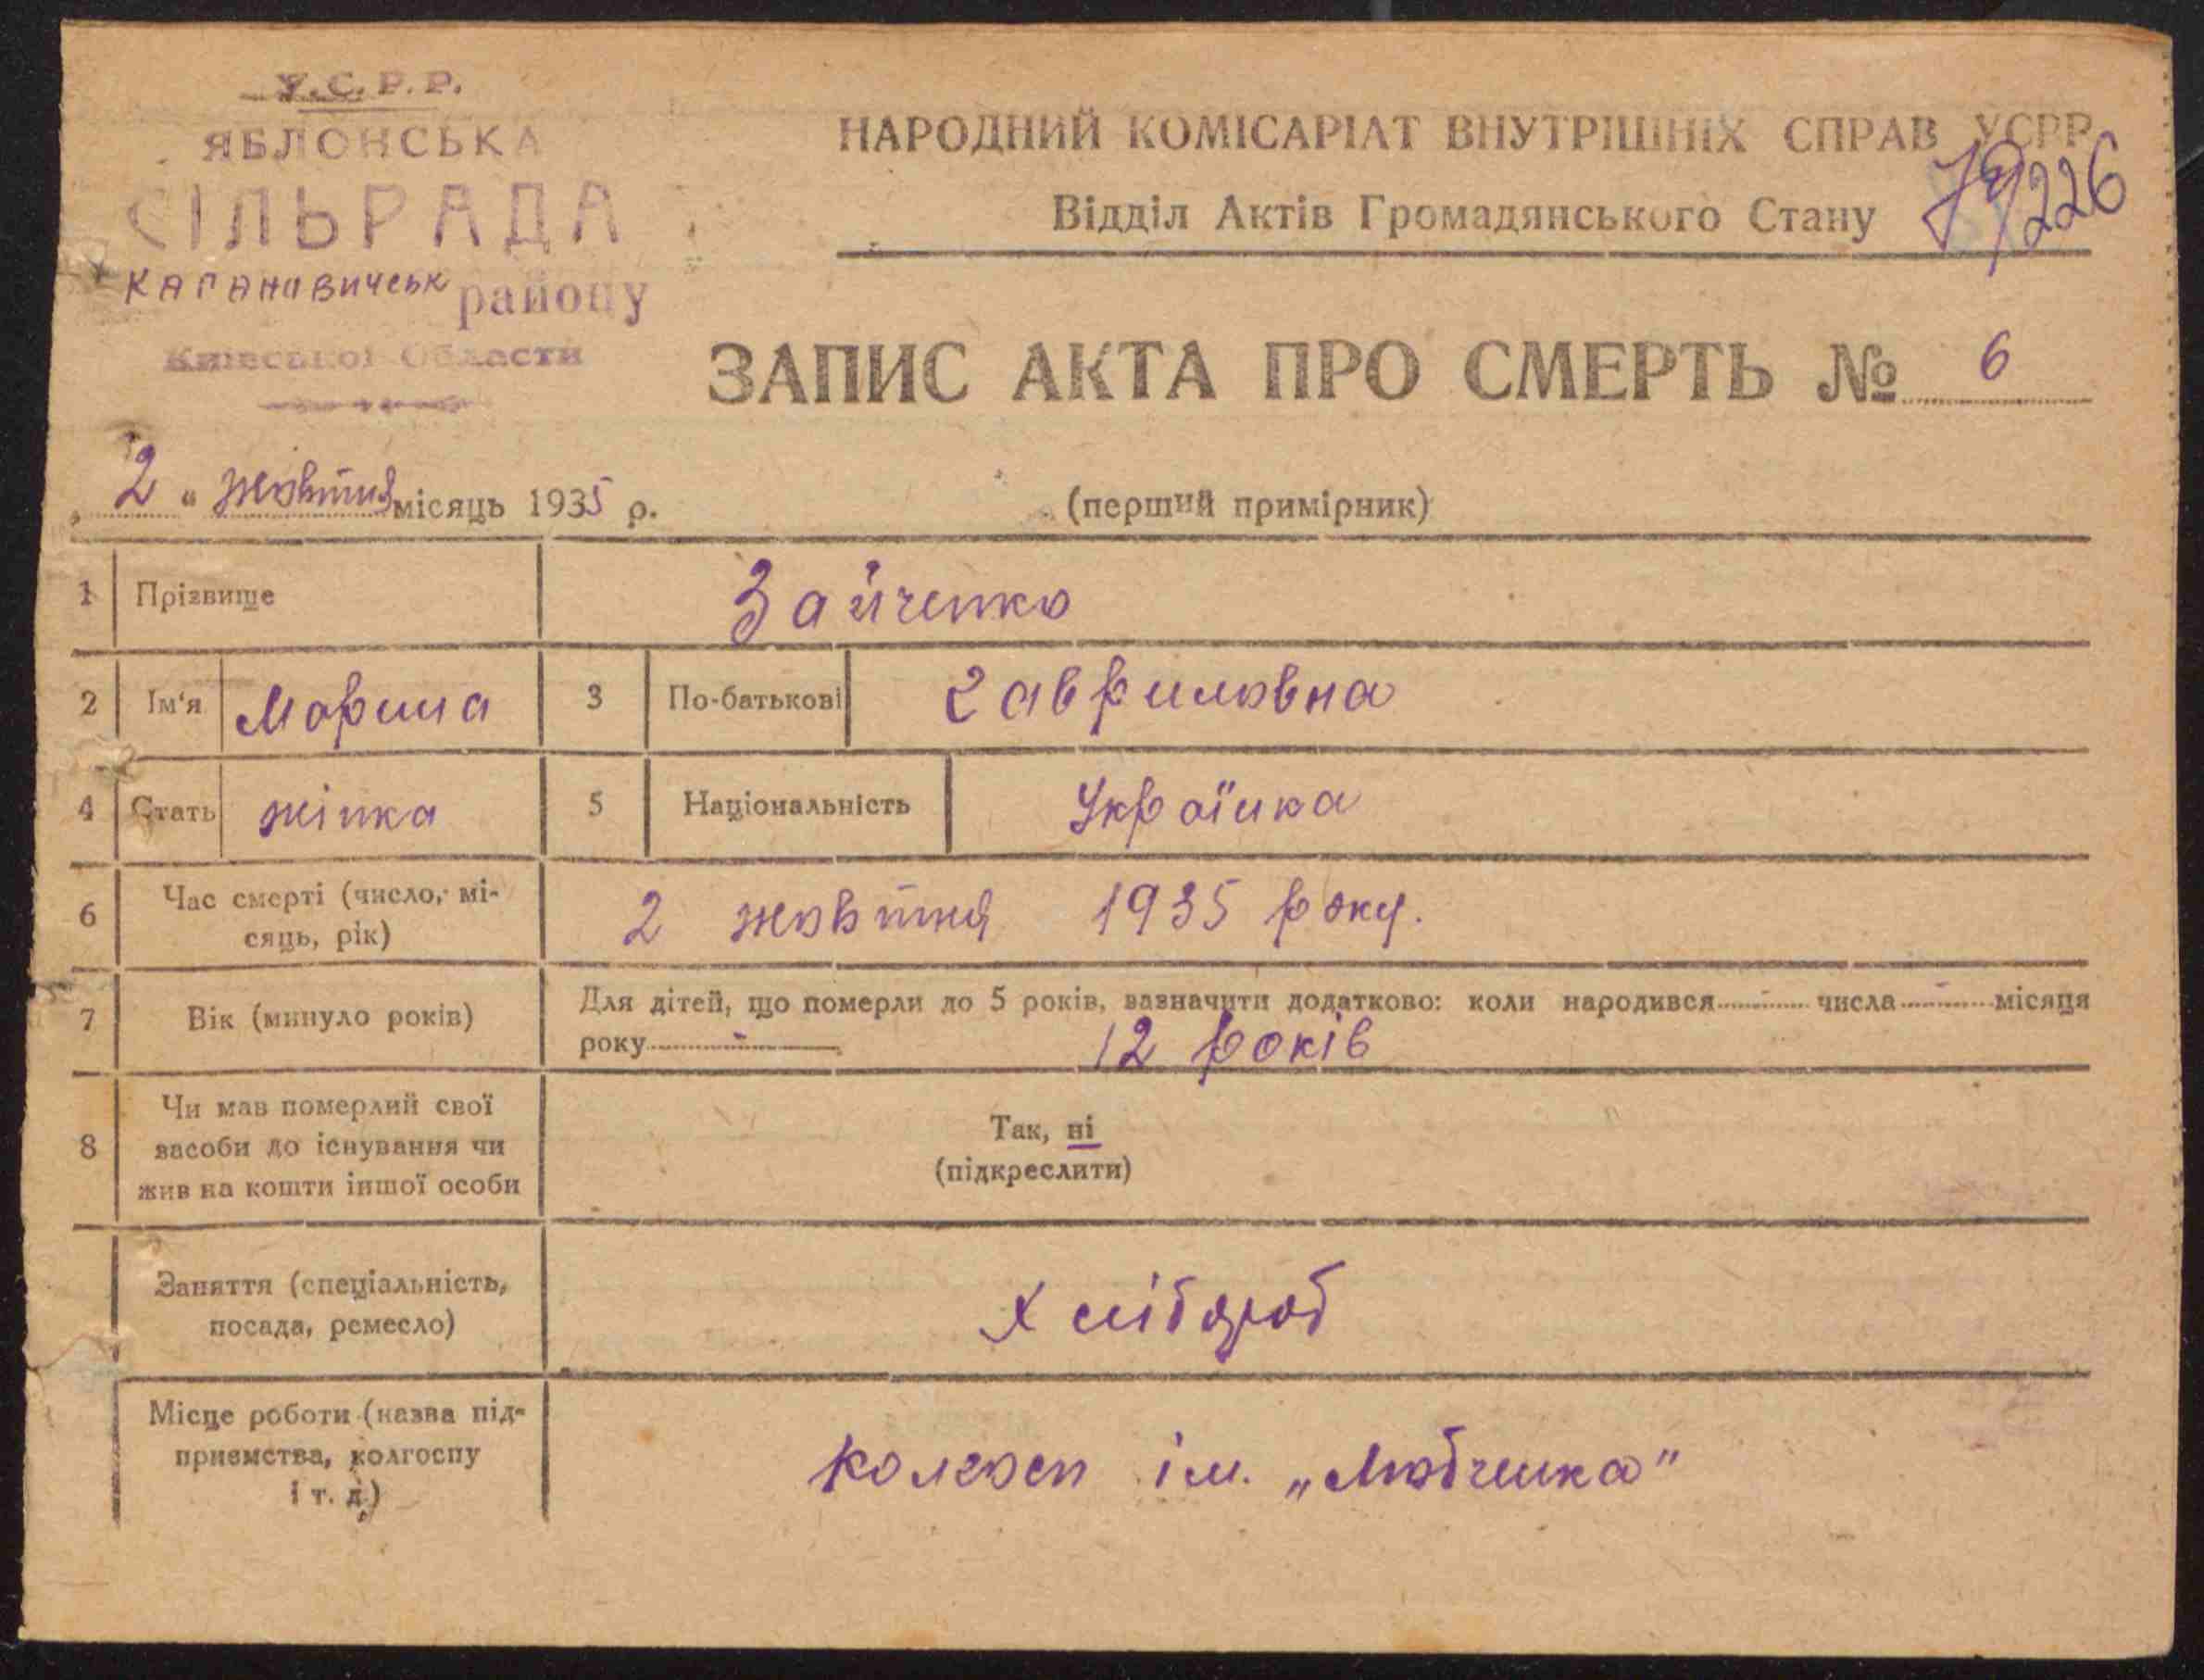 У.С.Р.Р.
ЯБЛОНСЬКА
СІЛЬРАДА
Кагановичськ району
Київської Области
НАРОДНИЙ КОМІСАРІАТ ВНУТРІШНІХ СПРАВ УСРР
226
Відділ Актів Громадянського Стану
ЗАПИС АКТА ПРО СМЕРТЬ № 6
„ 2 “ жовтня місяць 1935 р.
(перший примірник)
1 Прізвище Зайченко
2 Ім‘я Марина 3 По-батькові Гавриловна
4 Стать жінка 5 Національність Українка
6 Час смерті (число, мі-
сяць, рік) 2 жовтня 1935 року.
7 Вік (минуло років) Для дітей, що померли до 5 років, зазначити додатково: коли народився - числа - місяця
року - 12 років
8 Чи мав померлий свої
засоби до існування чи
жив на кошти іншої особи
Так, ні
(підкреслити)
Заняття (спеціальність,
посада, ремесло)
Хлібороб
Місце роботи (назва під-
приємства, колгоспу
і т. д.)
Колгосп ім. „Любченка"